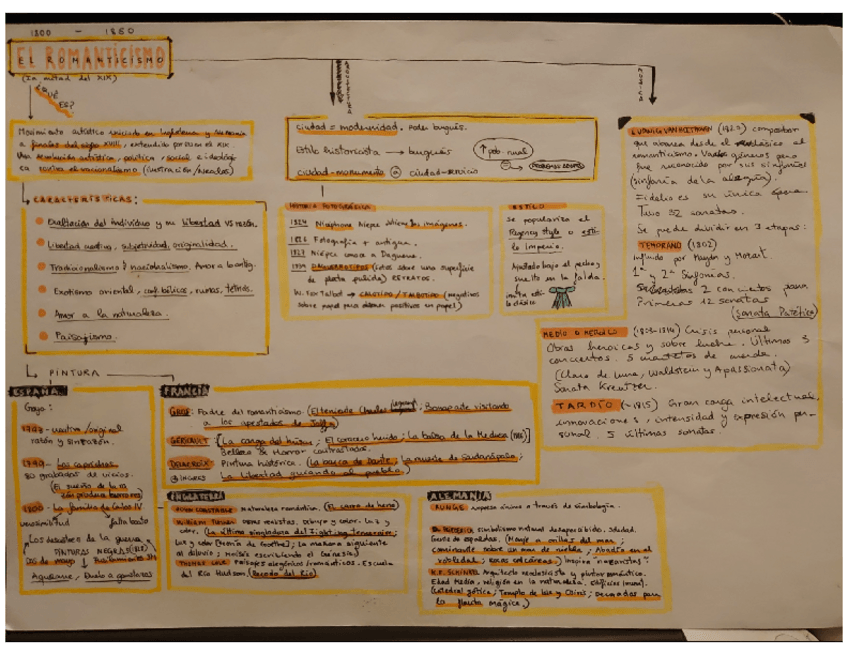 1800 - 1850
EL ROMANTICISMO
(1a mitad del XIX)
¿QUÉ ES?
Movimiento artístico iniciado en Inglaterra y
a finales del siglo XVIII, extendido por en el XIX.
Una revolución artística, política, social e ideológi
ca contra el racionalismo (ilustración/neoclas)
CARACTERÍSTICAS:
Exaltación del individuo y su libertad VS razón.
Libertad, subjetividad, originalidad.
Tradicionalismo y nacionalismo. Amor a lo antig.
Exotismo oriental, ruinas, tétrico.
Amor a la naturaleza.
Paisajismo.
ARQUITECTURA
ciudad = modernidad. Poder burgués.
Estilo historicista → burgués
↑ pob. rural
ciudad-monumento ciudad-servicio
HISTORIA FOTOGRÁFICA
1824 Nicéphore Niepce obtiene las imágenes.
1826 Fotografía + antigua.
1827 Niepce conoce a Daguerre.
DAGUERROTIPOS (fotos sobre una superficie
de plata pulida) RETRATOS.
Fox Talbot → CALOTIPO/TALBOTIPO (negativos
sobre papel para obtener positivos en papel)
ESTILO
Se populariza el
Regency style o esti-
lo Imperio.
Apretado bajo el pecho y
suelto en la falda.
imita esti-
lo clásico
MÚSICA
LUDWIG VAN BEETHOVEN (1827) compositor
que abarca desde el neoclásico al
romanticismo. Varios géneros pero
fue reconocido por sus sinfonías
(sinfonía de la alegría).
Fidelio es su única ópera
Tuvo 32 sonatas.
Se puede dividir en 3 etapas:
TEMPRANO (1802)
influido por Haydn y Mozart.
1ª y 2ª Sinfonías.
2 conciertos para
Primeras 12 sonatas
(Sonata Patética)
MEDIO O HEROICO (1803-1814) Crisis personal
Obras heroicas y sobre lucha. Últimos 3
conciertos. 5 cuartetos de cuerda.
(Claro de luna, Waldstein y Apassionata)
Sonata Kreutzer.
TARDÍO (~1815) Gran carga intelectual,
innovaciones, intensidad y expresión per-
sonal. 5 últimas sonatas.
PINTURA
ESPAÑA
Goya:
1793-
razón y sinrazón.
1799- Los caprichos
80 grabados de vicios.
(El sueño de la ra
zón produce monstruos)
1800 - La familia de Carlos IV
verosimilitud falta boato
Los desastres de la guerra
PINTURAS NEGRAS
Dos de mayo y Fusilamientos 3M
Aquelarre, Duelo a garrotazos
FRANCIA
GROS: Padre del romanticismo. (El teniente Charles Legrand; Bonaparte visitando
a los apestados de Jaffa)
GÉRICAULT: (La carga del húsar; El coracero herido; La balsa de la Medusa)
Belleza & Horror contrastados.
DELACROIX: Pintura histórica. (La barca de Dante; La muerte de Sardanápalo;
INGRES La Libertad guiando al pueblo.)
INGLATERRA
JOHN CONSTABLE: Naturaleza romántica. (El carro de heno)
WILLIAM TURNER: Dibujo y color. Luz y
color. (La última singladura del Fighting Temeraire;
Luz y color (Teoría de Goethe); La mañana siguiente
al diluvio; Moisés escribiendo el Génesis)
THOMAS COLE: Paisajes alegóricos & románticos. Escuela
del Río Hudson. (Recodo del Río)
ALEMANIA
RUNGE: expresa a través de simbología.
FRIEDRICH: simbolismo natural desapercibido. Soledad.
Gente de espaldas. (Monje a orillas del mar;
caminante sobre un mar de niebla; Abadía en el
robledal; Rocas calcáreas.) Inspira "nazarenos"
K.F. SCHINKEL: Arquitecto neoclasicista y pintor romántico.
Edad Media, religión en la naturaleza. Edificios
(Catedral gótica; Decorados para
la flauta mágica.)